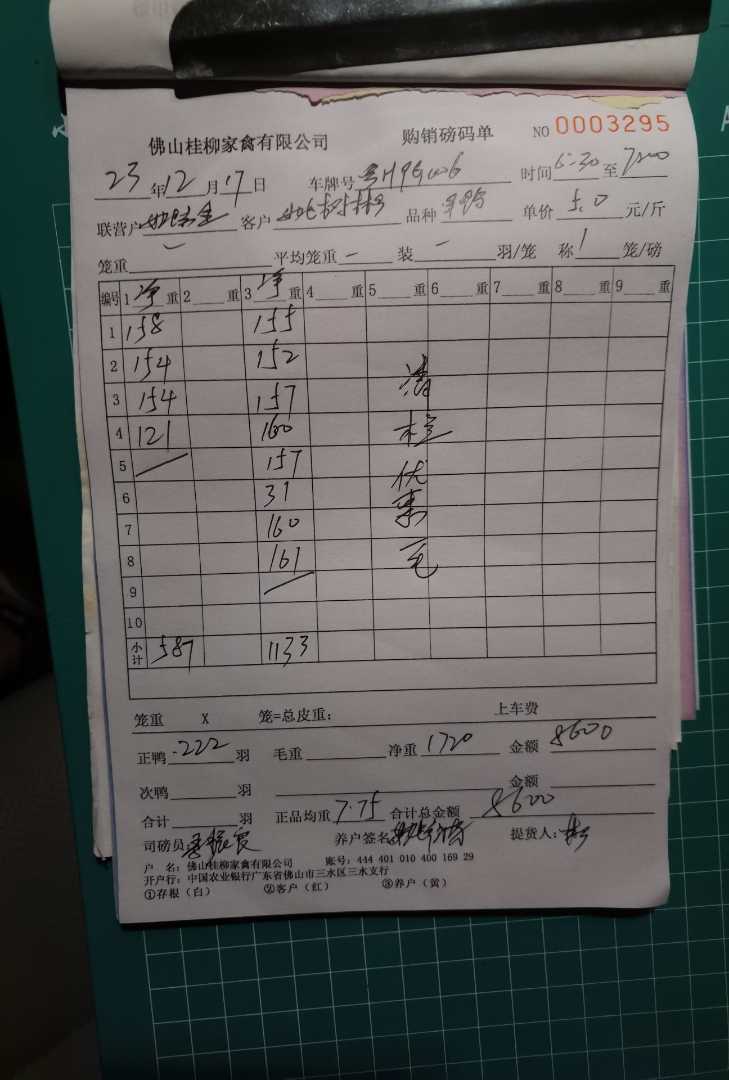 佛山桂柳家禽有限公司 购销磅码单 NO 0003295
23年12月17日 车牌号 时间6:30至7:00
联营户 客户 品种 单价5.0元/斤
笼重 一 平均笼重 一 装 一 羽/笼 称 1 笼/磅
编号 1净重 2 重 3净重 4 重 5 重 6 重 7 重 8 重 9 重
1 158 155
2 154 152
3 154 157
4 121 160
5 157
6 31
7 160
8 161
9
10
小计 587 1133
笼重 X 笼=总皮重: 上车费
正鸭 222 羽 毛重 净重 1720 金额 8600
次鸭 羽 金额
合计 羽 正品均重 7.75 合计总金额 8600
司磅员 养户签名 提货人:
户 名: 佛山桂柳家禽有限公司 账号: 444 401 010 400 169 29
开户行: 中国农业银行广东省佛山市三水区三水支行
①存根(白) ②客户(红) ③养户(黄)